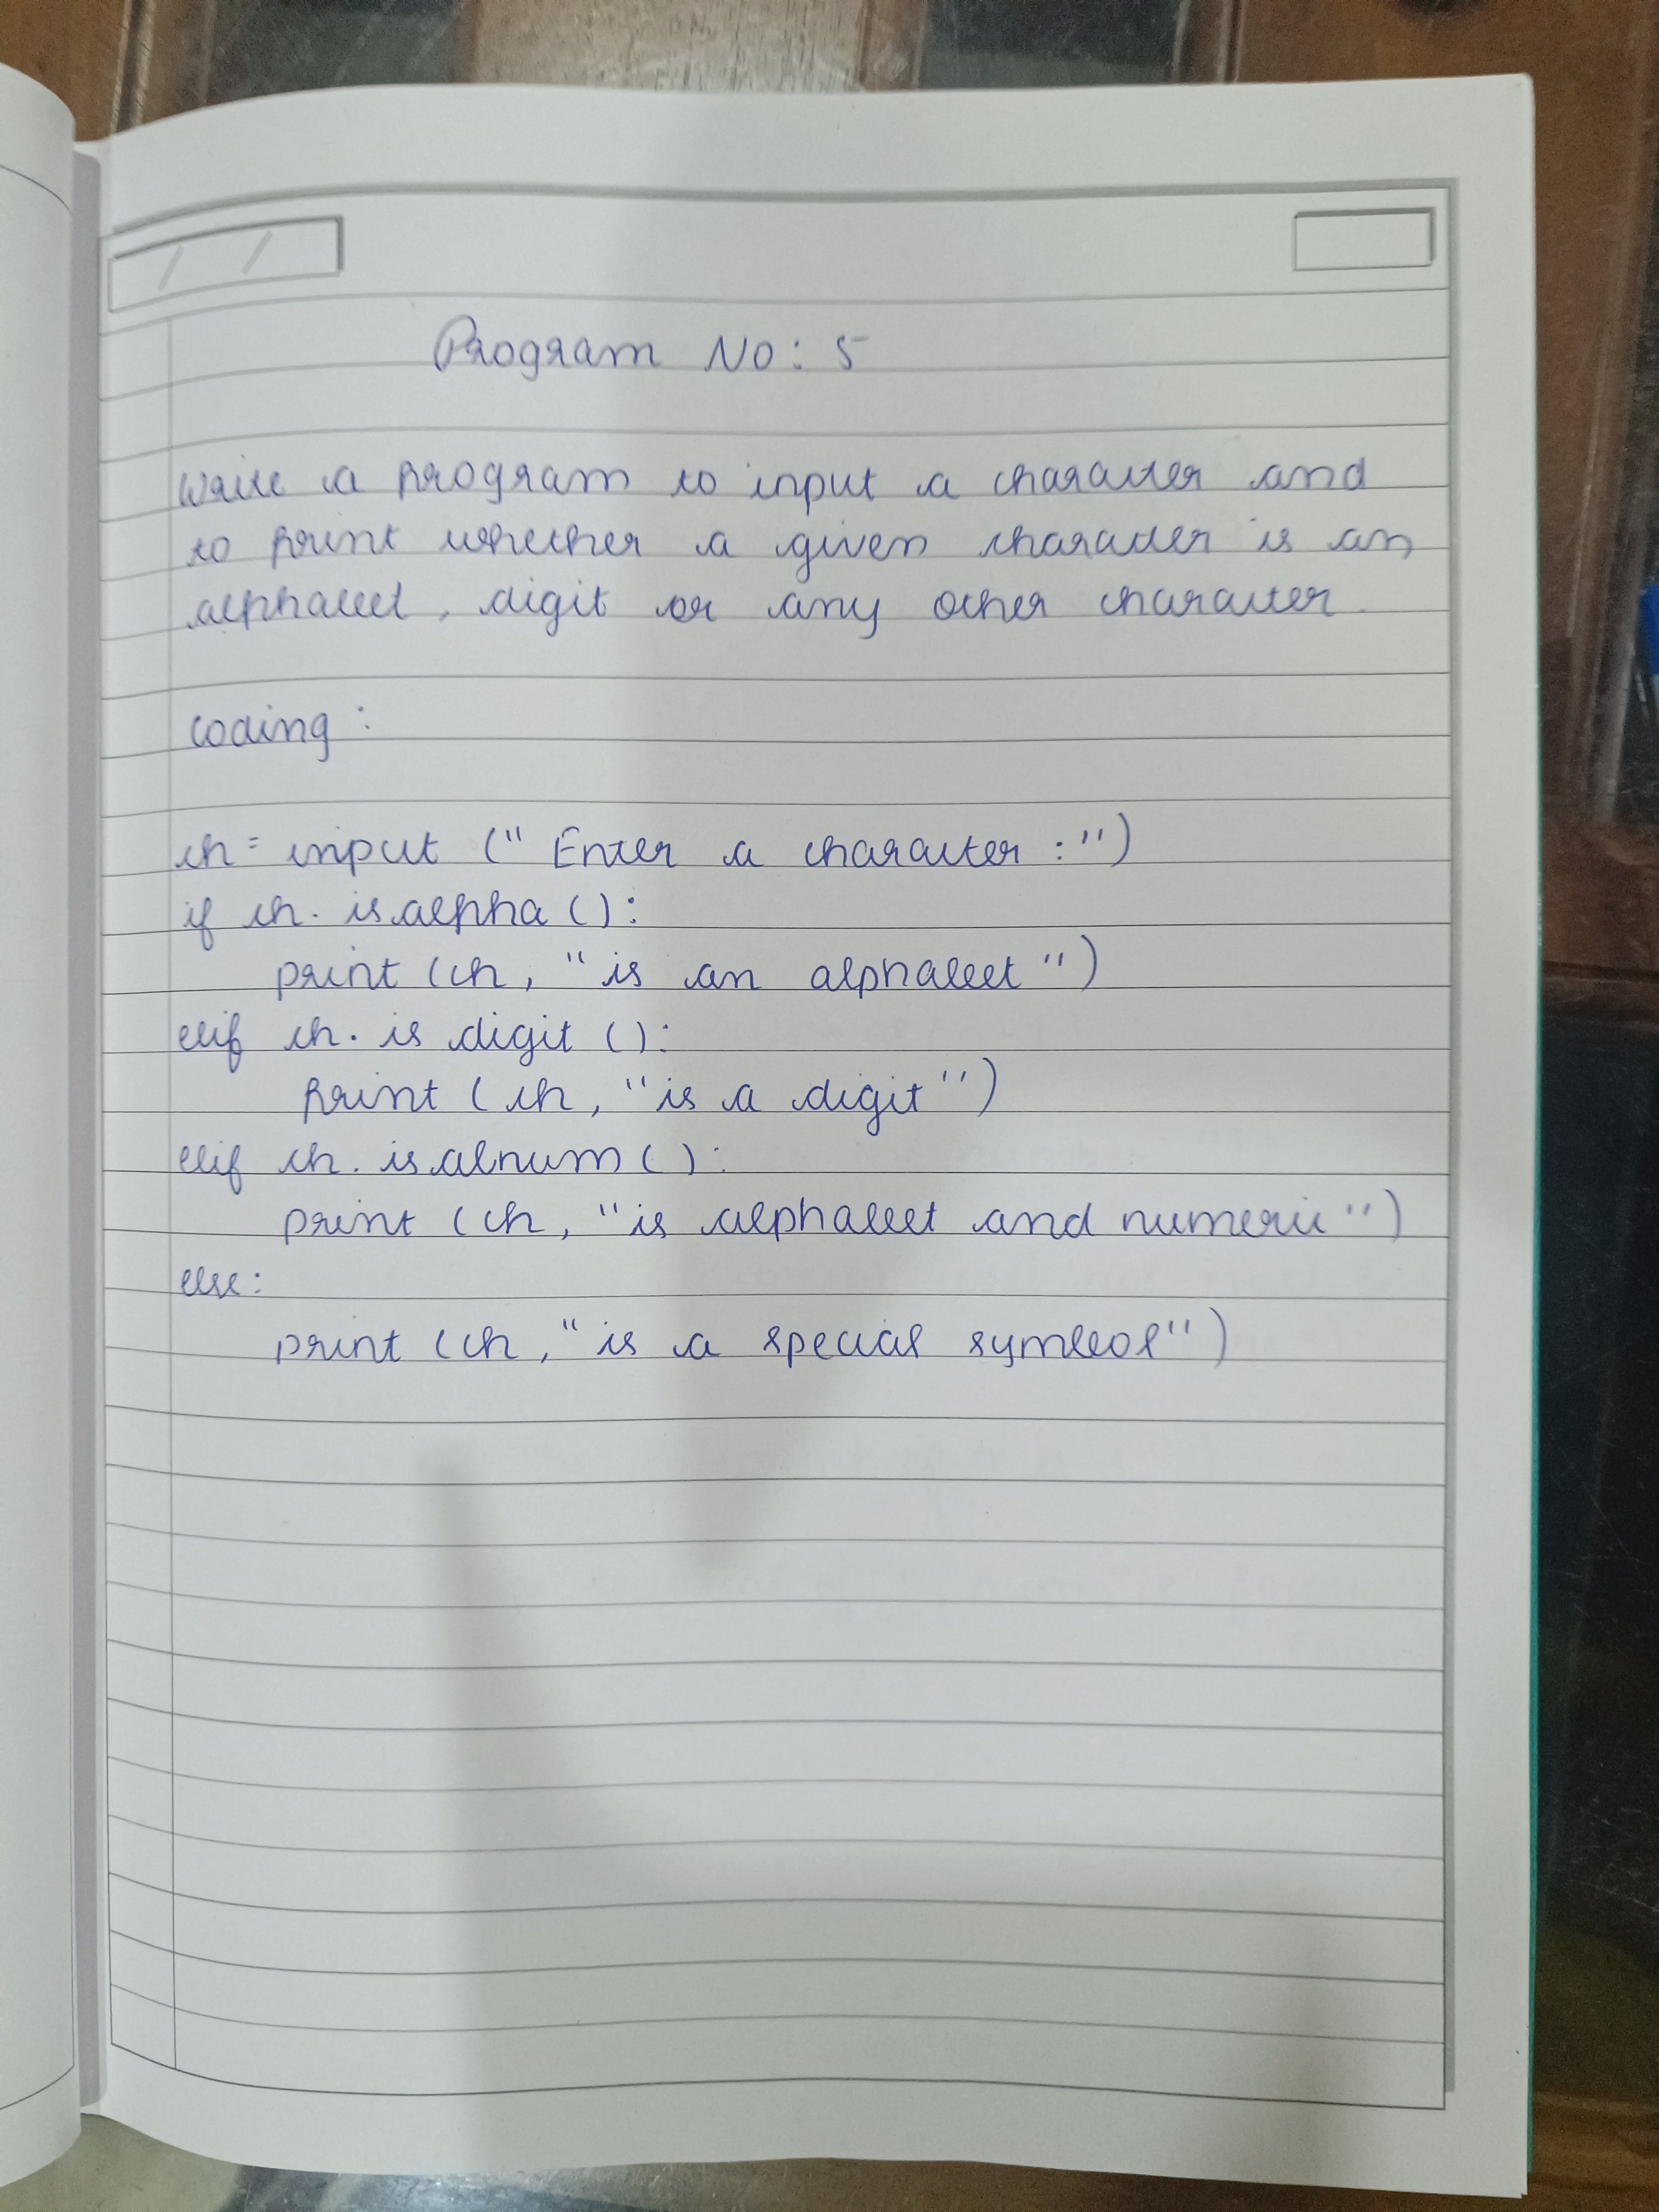 Program No: 5
Write a program to input a character and
to print whether a given character is an
alphabet, digit or any other character
coding:
ch = input (" Enter a character : ")
if ch. isalpha ():
print (ch, "is an alphabet")
elif ch. is digit ():
print (ch, "is a digit")
elif ch. isalnum ():
print (ch, "is alphabet and numeric")
else:
print (ch, "is a special symbol")